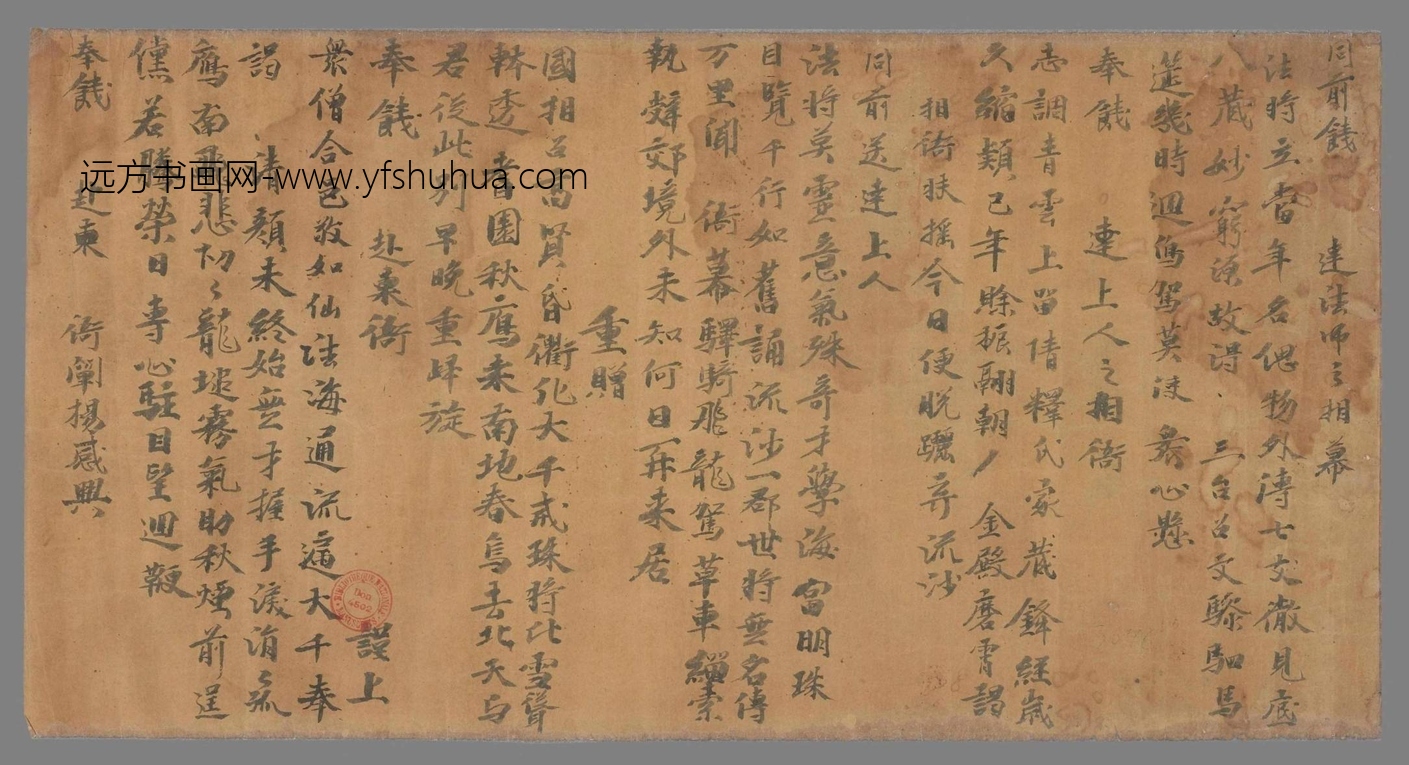 同前餞 達法師之相幕
法將立督年名偲物外傳七支徹見底
八藏妙窮源故得 三台召文驂駟馬
筵幾時迴馬駕莫使 衆心懸
奉餞 連上人之相衙
志調青雲上留情釋氏家藏鋒經歲
久縮類已年賒振翮朝 金殿磨霄謁
相衙扶摇今日便脱躧弃流沙
同前送達上人
法將英靈意氣殊奇才學海富明珠
目覽千行如舊誦流沙一郡世將無名傳
万里聞 衙幕驛騎飛龍駕草車繼索
執聲郊境外未知何日再来居
重贈
國相召高賢昏衢化大千戒珠将比雪聲
秋透 香園秋鴈来南地春鳥去北天与
君従此別早晚重歸旋
奉餞 赴東衙 謹上
衆僧合邑敬如仙法海通流遍大千奉
謁 清顏未終始無才握手淚涓涓孤
鴈南飛悲切切龍堆霧氣助秋煙前逞
儻若騰榮日專心駐目望迴鞭
奉餞 赴東 衙闡揚感興
远方书画网-www.yfshuhua.com